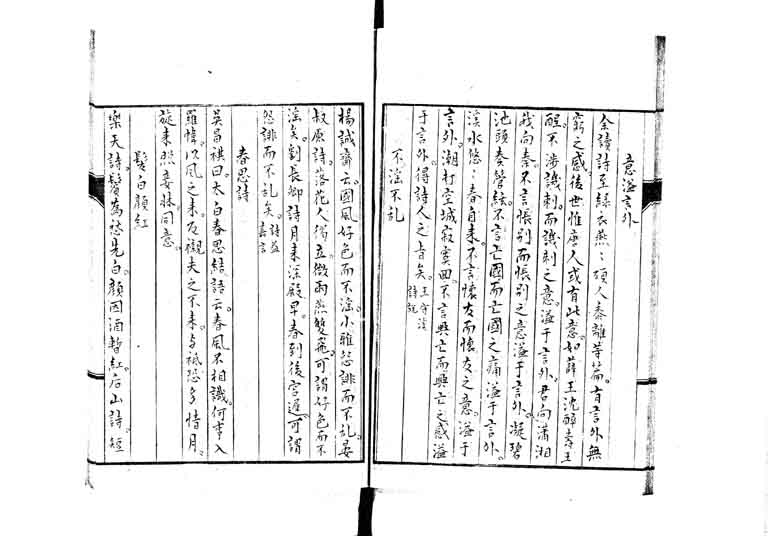 意溢言外
余讀詩至綠衣燕燕碩人黍離等篇。有言外無
窮之感。後世惟唐人或有此意。如薛王沈醉壽王
醒。不涉譏刺而譏刺之意。溢于言外。君向瀟湘
我向秦。不言悵別而悵別之意溢于言外。凝碧
池頭奏管絃。不言亡國而亡國之痛溢于言外。
溪水悠悠春自来。不言懷友而懷友之意。溢于
言外。潮打空城寂寞回。不言興亡而興亡之感溢
于言外。得詩人之旨矣。王守溪詩說
不淫不乱
楊誠齋云。國風好色而不淫。小雅怨誹而不乱。晏
叔原詩。落花人獨立。微雨燕雙飛。可謂好色而不
淫矣。劉長卿詩月来深殿早。春到後宫遲。可謂
怨誹而不乱矣。詩益嘉言
春思詩
吳昌祺曰。太白春思結語云。春風不相識。何事入
羅幃。以風之来。反襯夫之不来。与祗恐多情月。
旋来照妾牀同意。
髩白顔紅
樂天詩。鬢為愁先白。顔因酒暫紅。后山詩。短